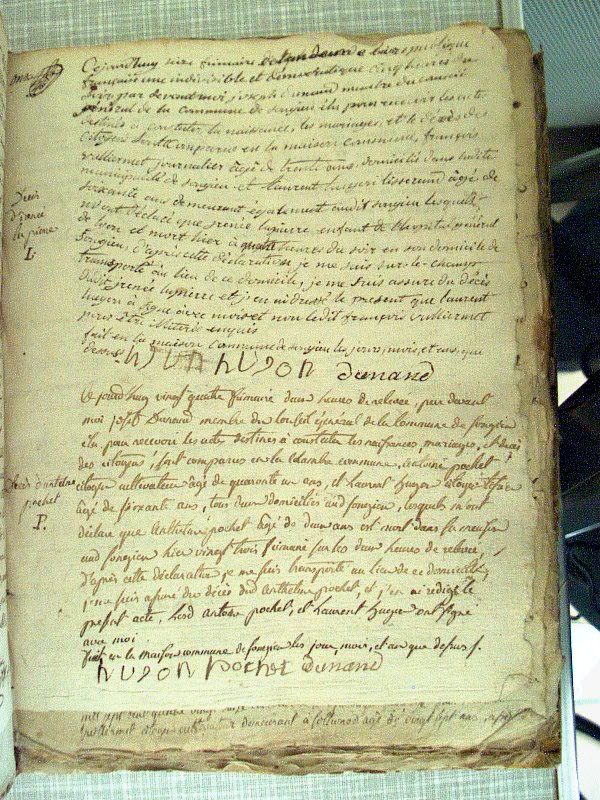 Cejourd'huy seize frimaire de l'an deux de la république
française une indivisible et démocratique cinq heures du
soir par devant moi joseph dunand membre du conseil
général de la commune de songieu élu pour recevoir les actes
destinés a constater la naissance, les mariages, et le décès des
citoyens sont comparus en la maison commune, françois
vulliermet journalier âgé de trente ans, domicilié dans ladite
municipalité de songieu et laurent hugon tisserand âgé de
soixante ans demeurant également audit songieu lesquels
m'ont déclaré que lumiere enfant de l'hopital général
de lyon est mort hier à quatre heures du soir en son domicile de
songieu, d'après cette déclaration je me suis sur-le-champ
transporté au lieu de ce domicile, je me suis assuré du décès
dudit lumiere et j'en ai dressé le présent que laurent
hugon a signé avec moi et non ledit françois vulliermet
pour être illitéré enquis
fait en la maison commune de songieu les jour, mois, et an, que
dessus HUGON dunand
Décès
Cejourd'huy vingt quatre frimaire deux heures de relevée, par devant
moi Joseph Dunand membre du Conseil général de la Commune de songieu
élu pour recevoir les actes destinés à constater les naissances mariages, et décès
des citoyens, sont comparus en la Chambre commune, antoine pochet
citoyen cultivateur âgé de quarante un ans, et Laurent Hugon citoyen
âgé de soixante ans, tous deux domiciliés audit songieu, lesquels m'ont
déclaré que Anthelme pochet âgé de deux ans est mort dans sa maison
audit songieu hier vingt trois frimaire sur les deux heures de relevée,
d'après cette déclaration je me suis transporté au lieu de ce domicile,
je me suis assuré du décès dudit Anthelme pochet, et j'en ai rédigé le
présent acte, lesd antoine pochet, et Laurent Hugon ont signé
avec moi
fait en la maison commune de songieu les jour, mois, et an que dessus.
HUGON pochet dunand
Décès d'antelme
pochet
mil sept cent quatre vingt
vulliermet citoyen cultivateur demeurant à âgé de vingt sept ans